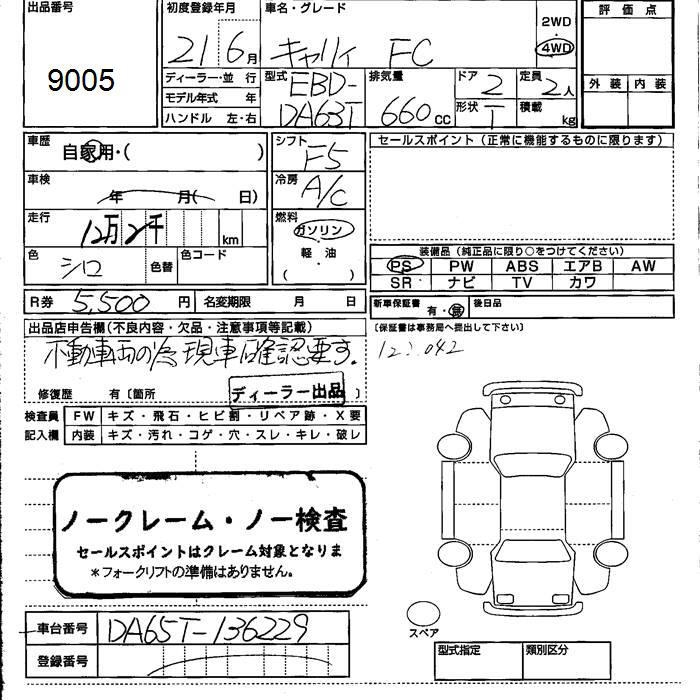 出品番号
9005
初度登録年月
21 6月
車名・グレード
キャリィ FC
2WD
4WD
評価点
外装 内装
ディーラー・並 行
モデル年式 年
ハンドル 左・右
型式
EBD-
DA63T
排気量
660 cc
ドア 2
形状 T
定員 2人
積載 kg
車歴
自家用・( )
車検
年 月( 日)
走行
12万2千 km
色
シロ
色替
色コード
シフト
F5
冷房
A/C
燃料
ガソリン
軽 油
( )
セールスポイント(正常に機能するものに限ります)
装備品(純正品に限り○をつけてください)
PS PW ABS エアB AW
SR ナビ TV カワ
R券 5,500 円 名変期限 月 日
新車保証書 有・無 後日品
(保証書は事務局へ提出して下さい)
122042
出品店申告欄(不良内容・欠品・注意事項等記載)
不動車両の為現車確認要す.
修復歴 有〔箇所 〕
ディーラー出品
検査員 FW キズ・飛石・ヒビ割・リペア跡・X要
記入欄 内装 キズ・汚れ・コゲ・穴・スレ・キレ・破レ
ノークレーム・ノー検査
セールスポイントはクレーム対象となりま
*フォークリフトの準備はありません。
車台番号 DA65T-136229
登録番号
スペア
型式指定 類別区分